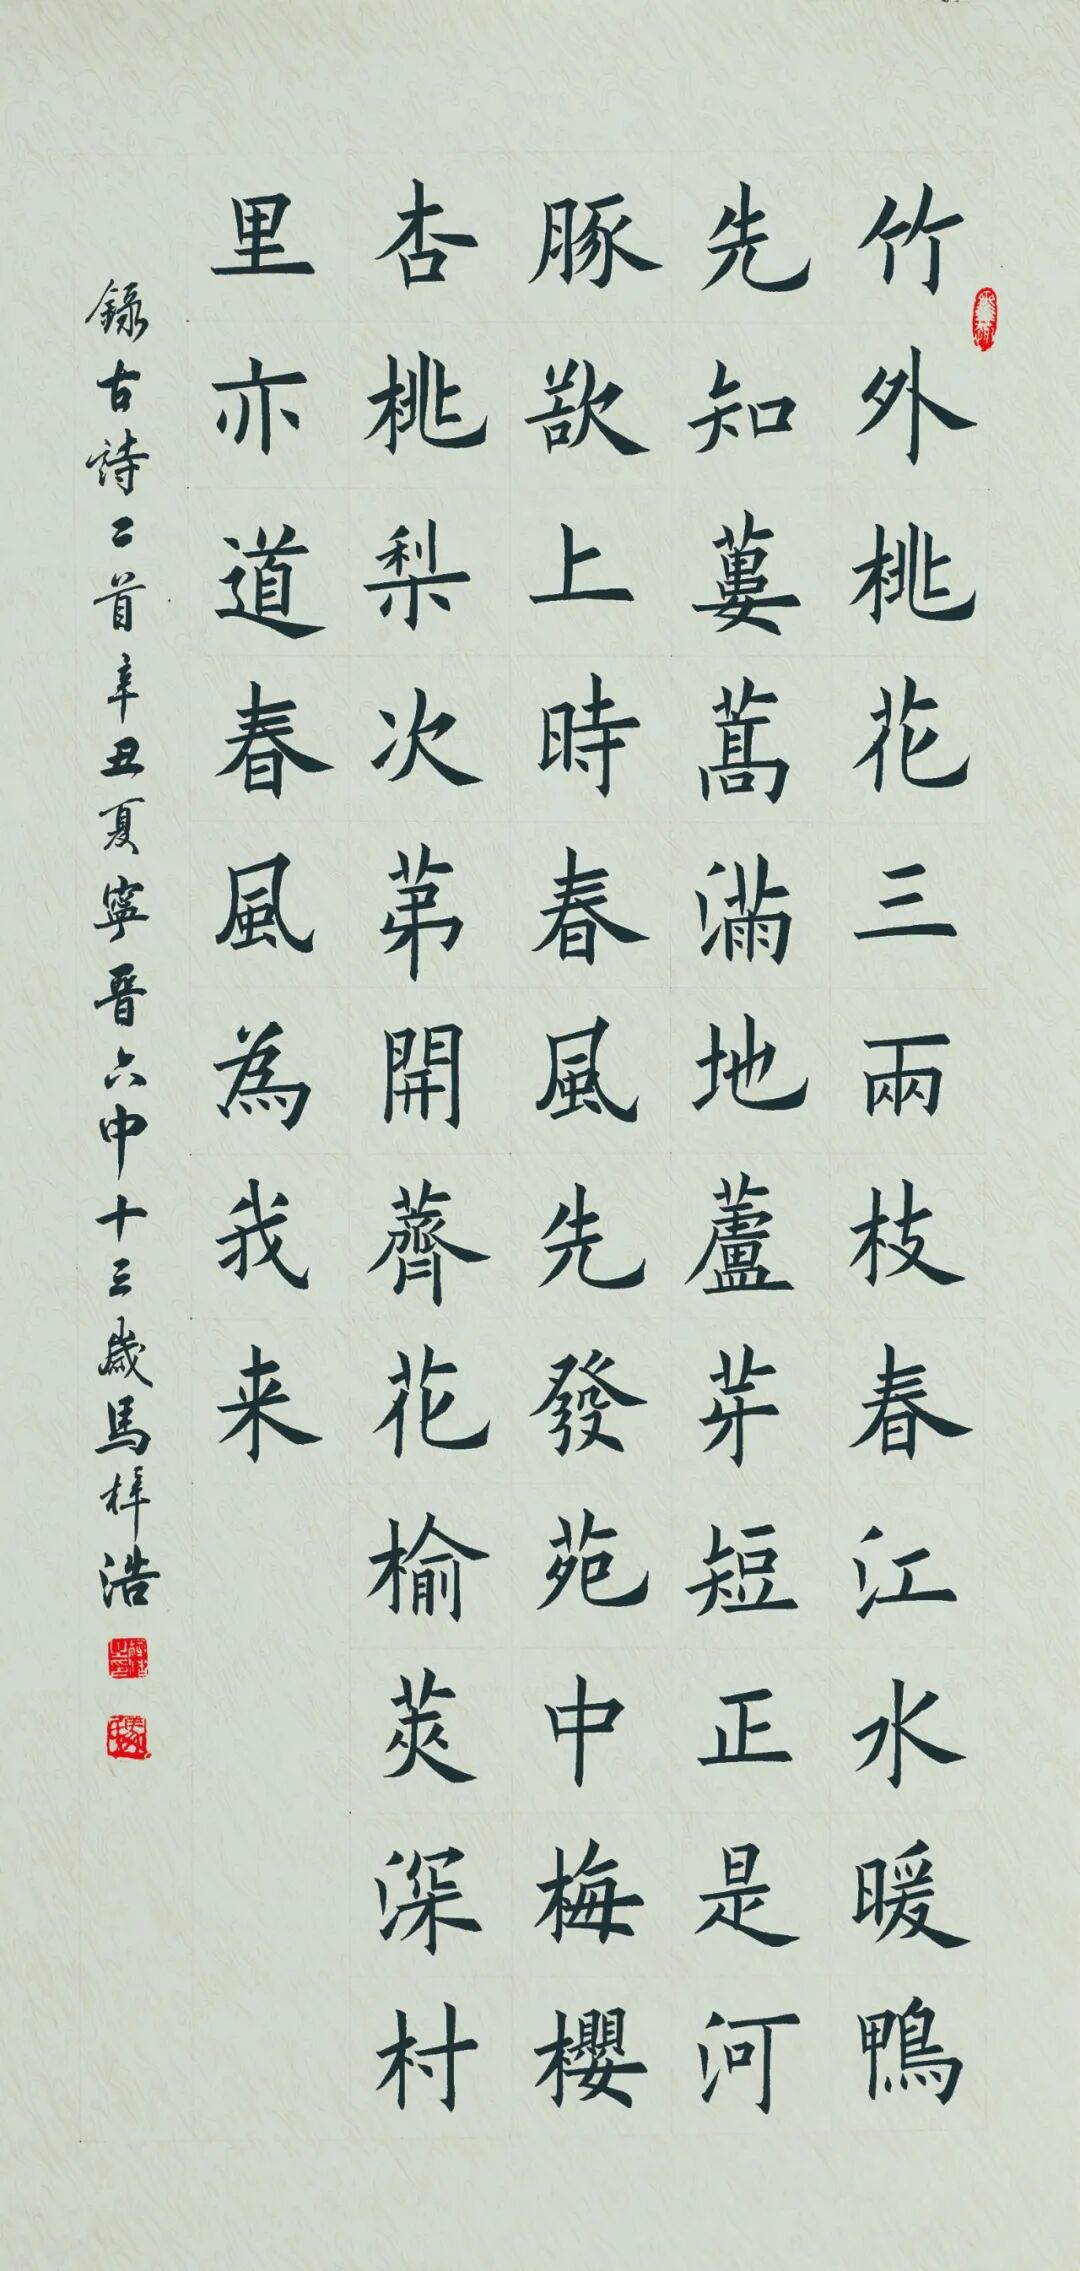 竹外桃花三兩枝春江水暖鴨
先知蔞蒿滿地蘆芽短正是河
豚欲上時春風先發苑中梅櫻
杏桃梨次苐開薺花榆莢深村
里亦道春風為我来
錄古詩二首辛丑夏寧晉六中十三歲馬梓浩